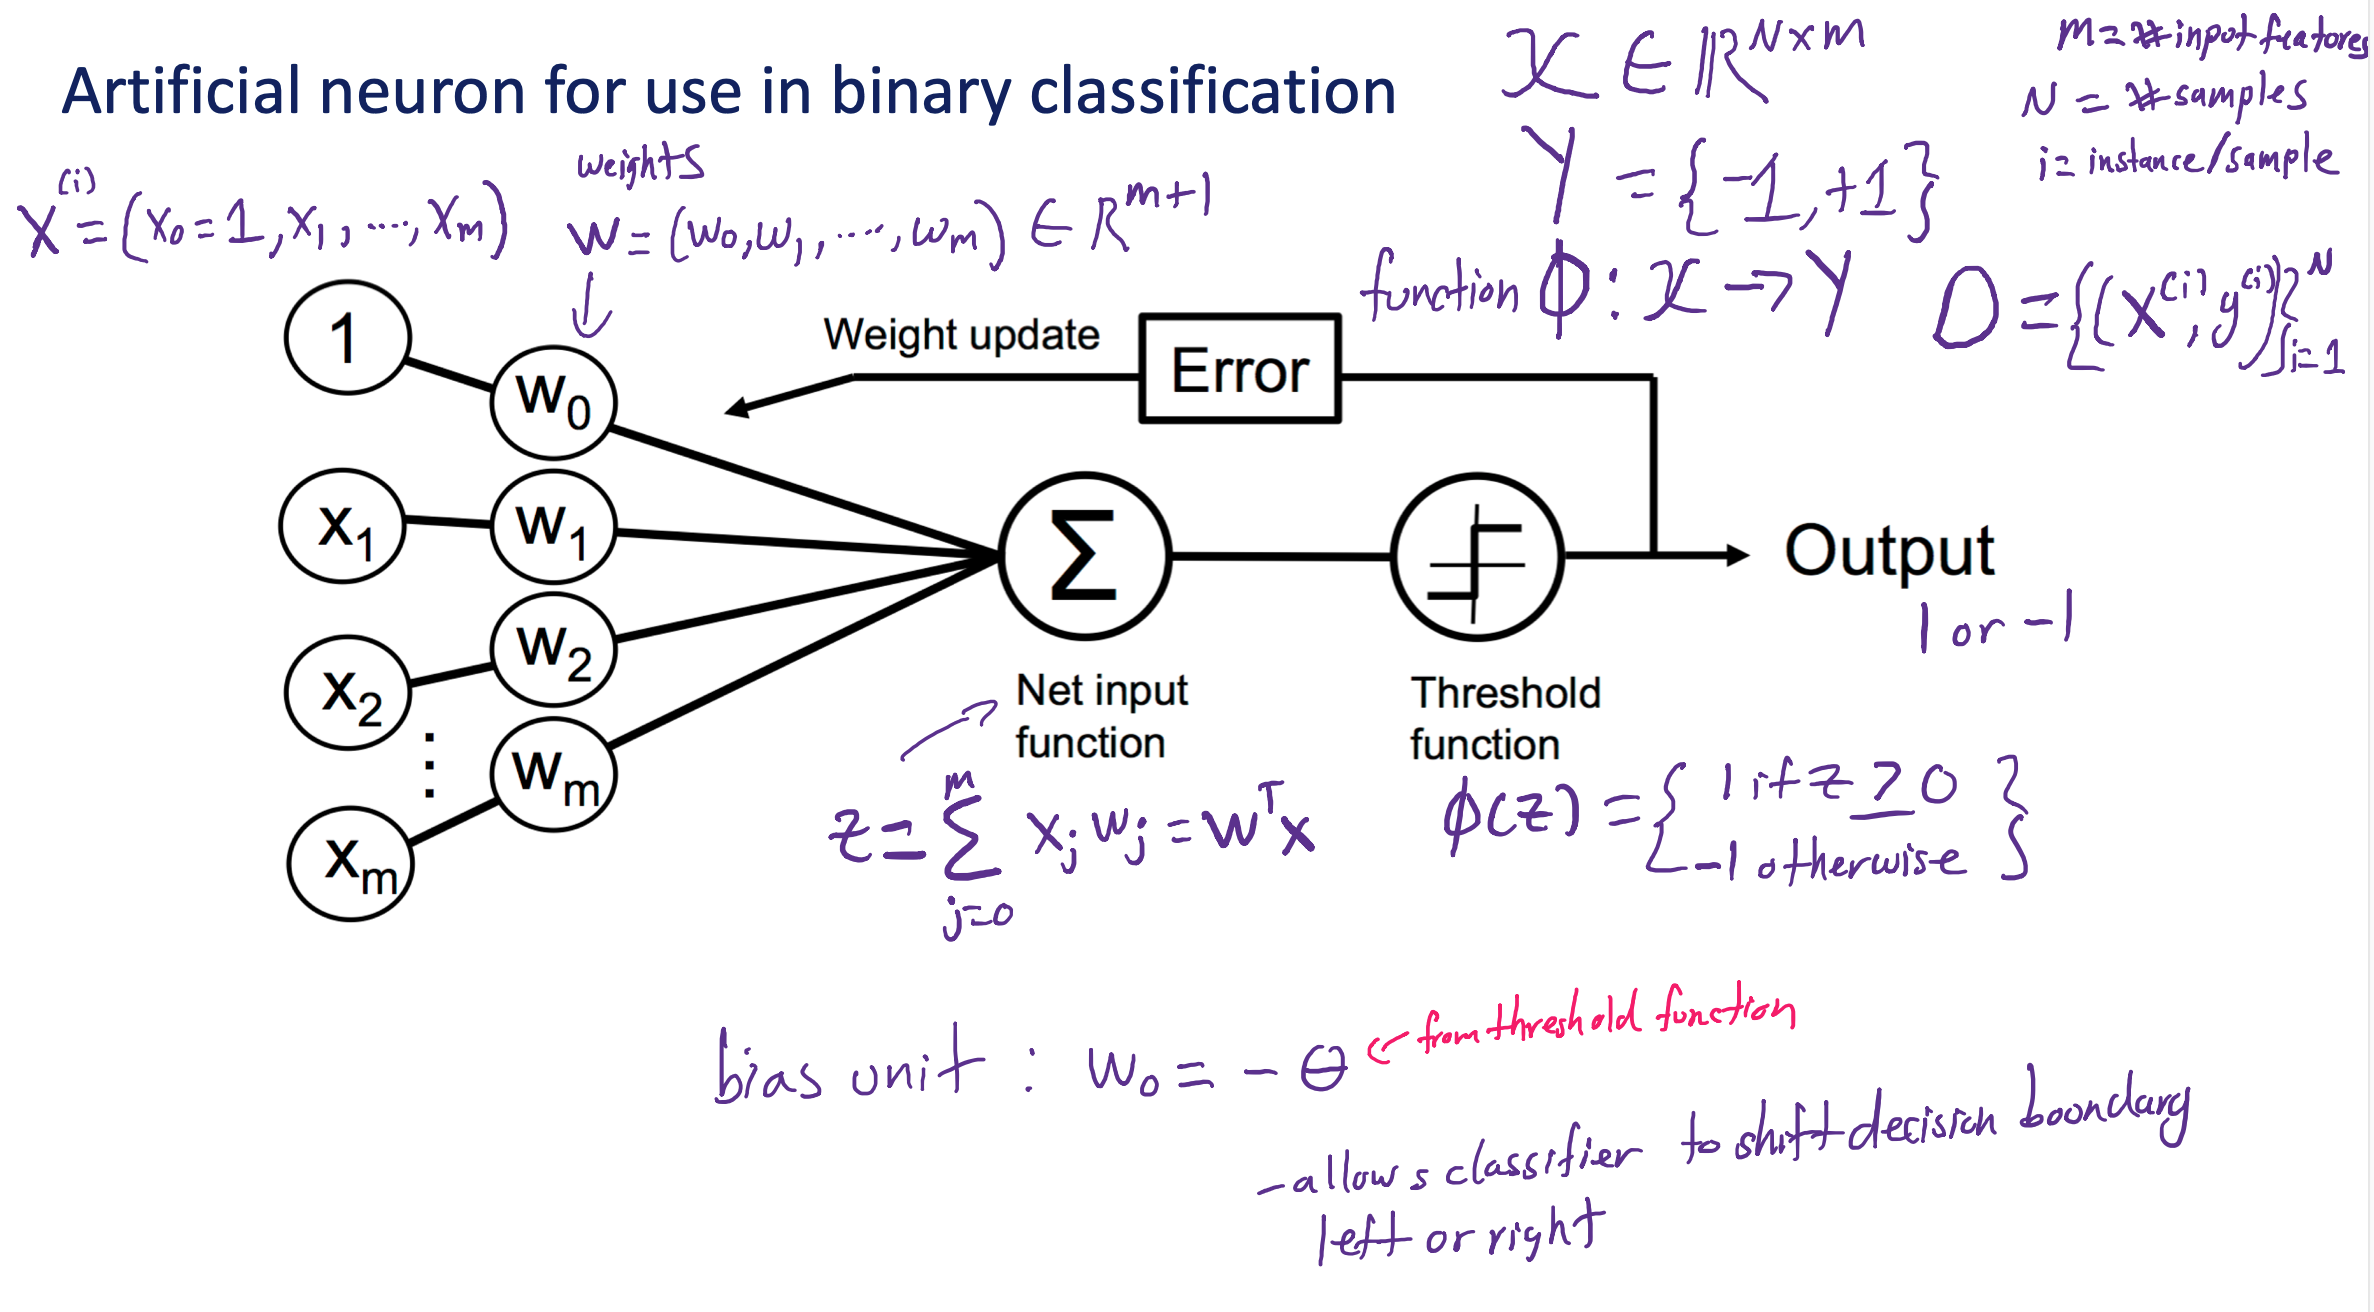 Artificial neuron for use in binary classification
𝒳 ∈ ℝ^{N×m}
m = # input features
N = # samples
i = instance/sample
Y = {-1, +1}
function ϕ : 𝒳 → Y
D = {(x^{(i)}, y^{(i)})}_{i=1}^{N}
weights
x^{(i)} = (x₀ = 1, x₁, ..., xₘ)
w = (w₀, w₁, ..., wₘ) ∈ ℝ^{m+1}
1
w₀
Weight update
Error
x₁
w₁
Σ
Output
1 or -1
x₂
w₂
⋮
xₘ
wₘ
Net input
function
Threshold
function
z = Σ_{j=0}^{m} xⱼ wⱼ = wᵀx
ϕ(z) = { 1 if z ≥ 0
-1 otherwise }
bias unit : w₀ = - θ ← from threshold function
- allows classifier to shift decision boundary
left or right